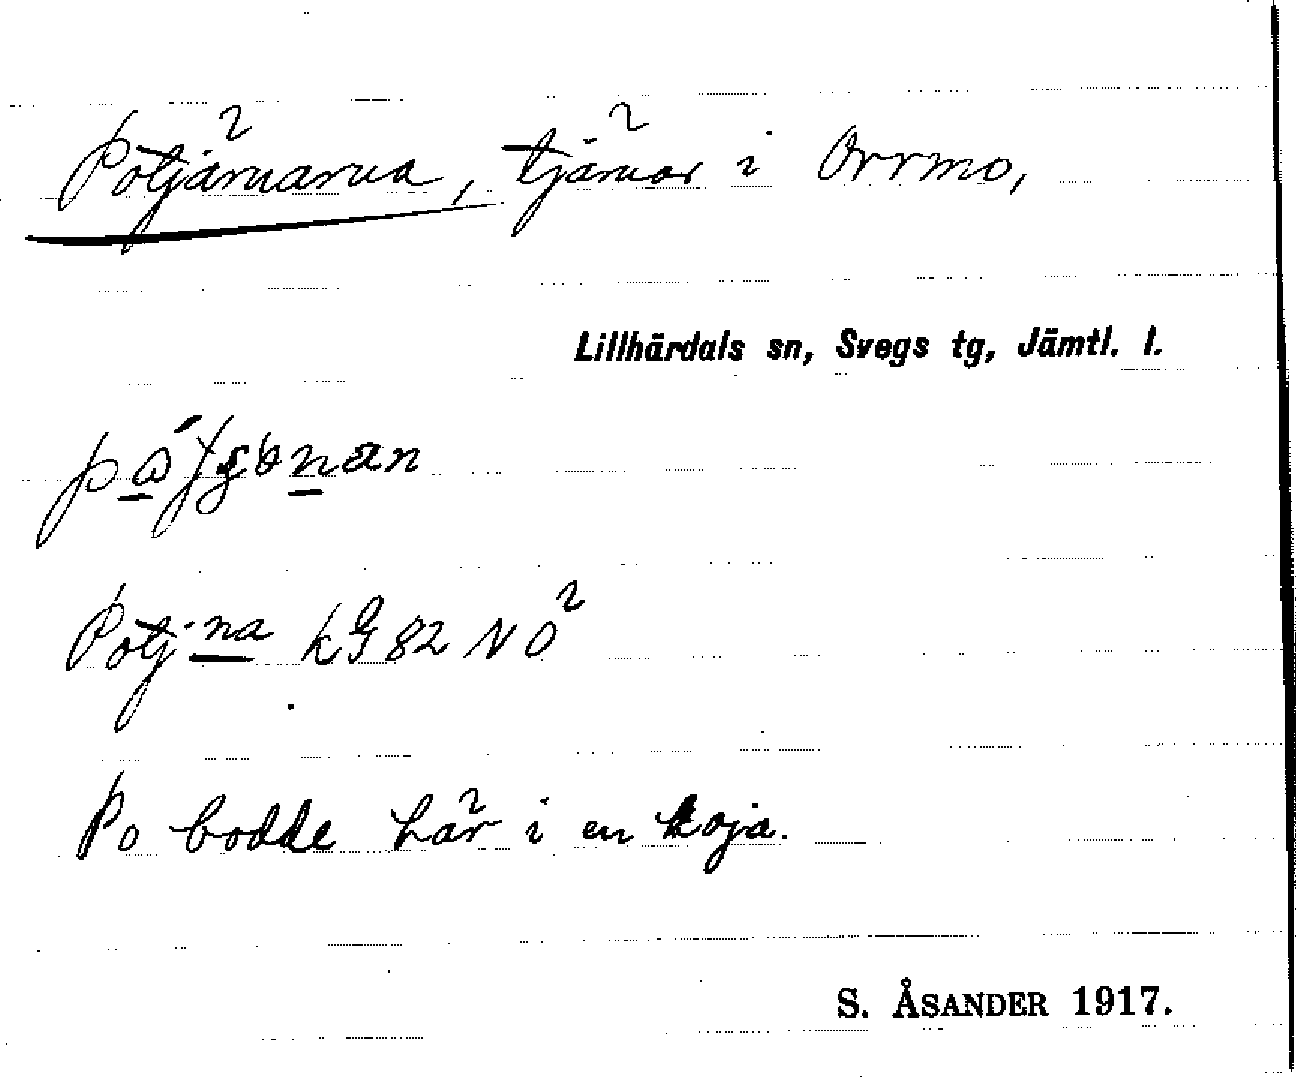 Potjärnarna, tjärnar i Orrmo,
Lillhärdals sn, Svegs tg, Jämtl. l.
Potj:na kG 82 NO
Po bodde här i en koja.
S. ÅSANDER 1917.